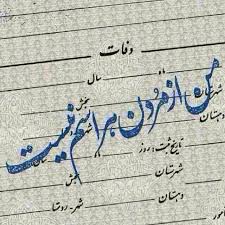 وفات
سال
شهرستان بخش
من از مردن هراسم نیست
دهستان شهر
تاریخ ثبت : روز
شهرستان بخش
دهستان شهر - روستا